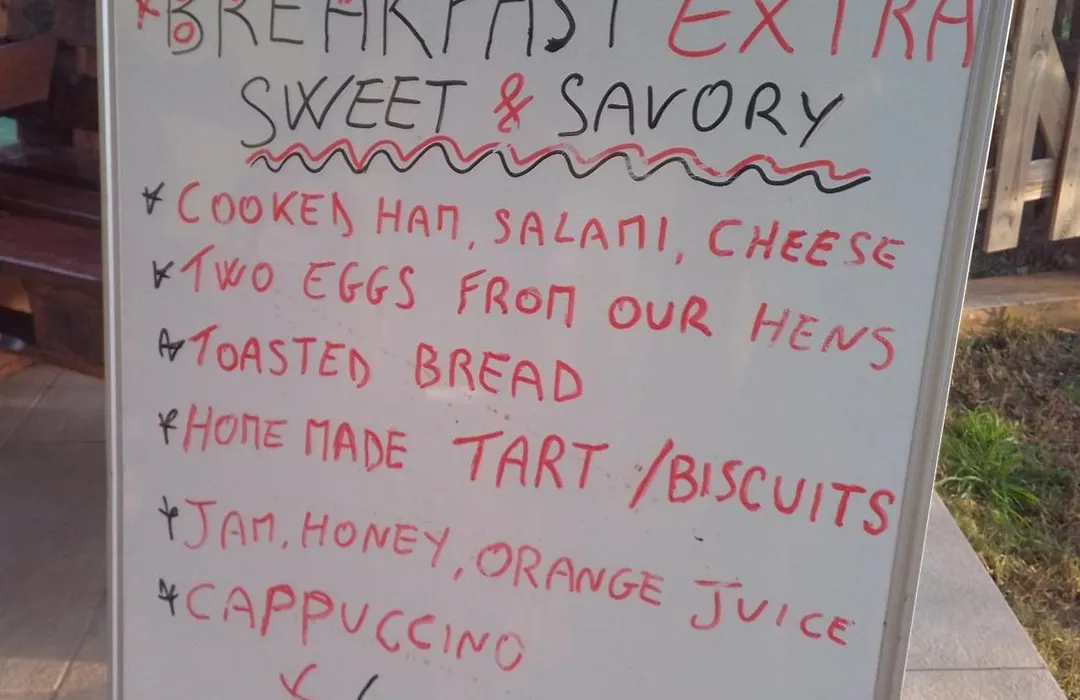 *BREAKFAST EXTRA
SWEET & SAVORY
* COOKED HAM, SALAMI, CHEESE
* TWO EGGS FROM OUR HENS
* TOASTED BREAD
* HOME MADE TART /BISCUITS
* JAM, HONEY, ORANGE JUICE
* CAPPUCCINO